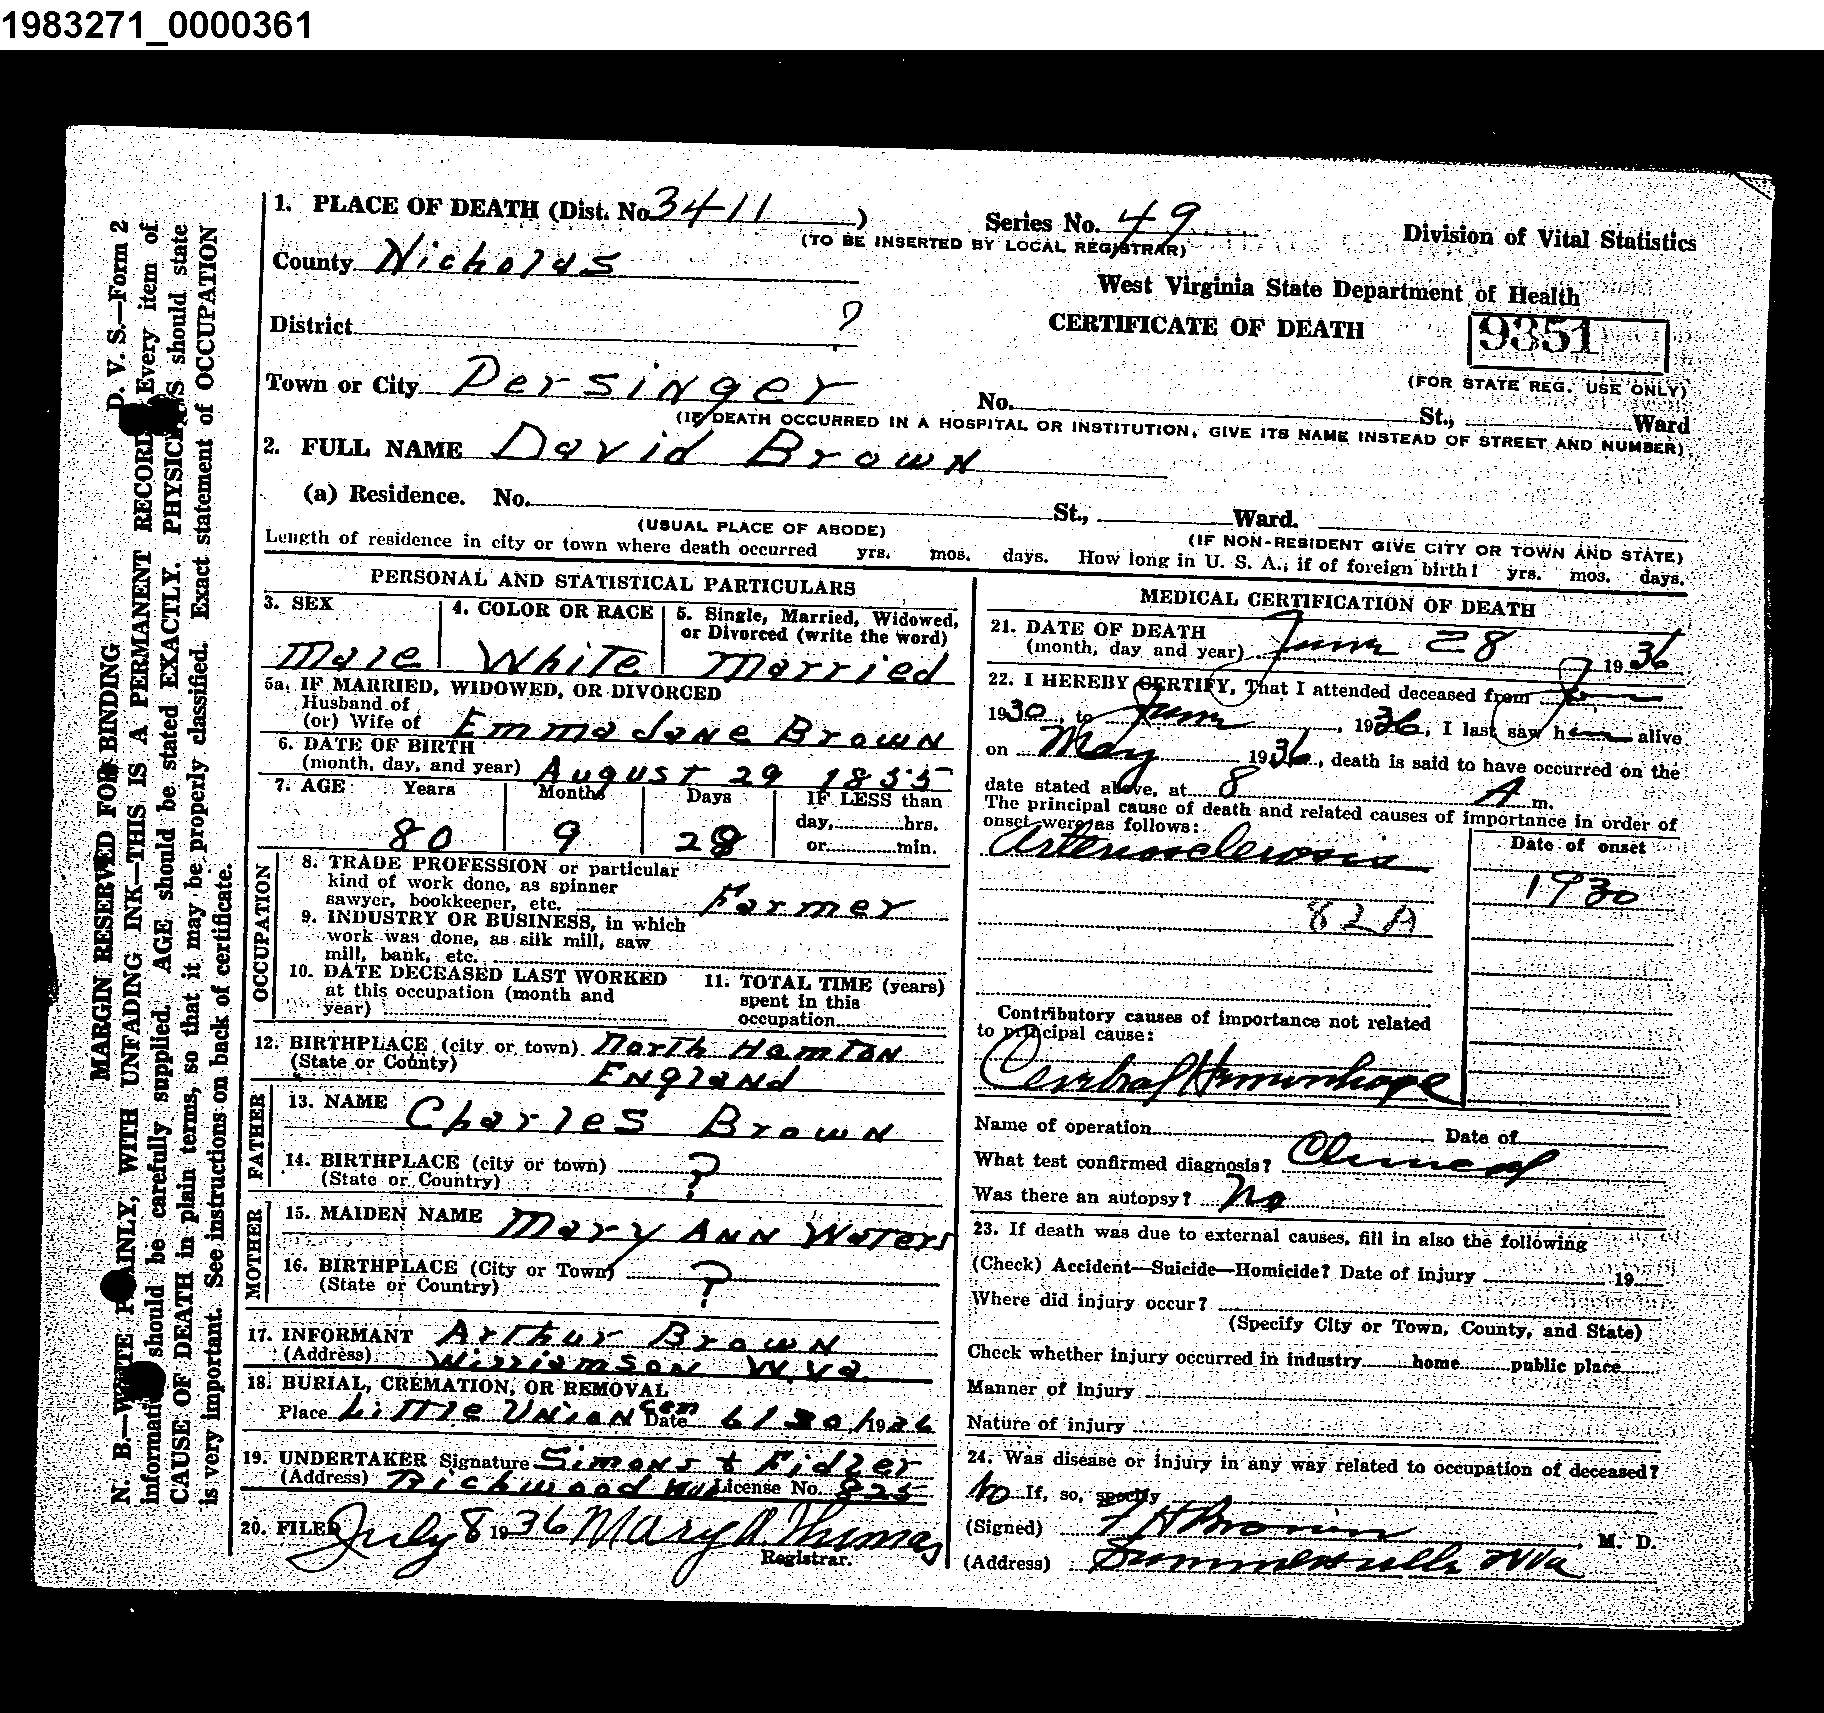 1983271_0000361
1. PLACE OF DEATH (Dist. No. 3411)
Series No. 49
(TO BE INSERTED BY LOCAL REGISTRAR)
Division of Vital Statistics
County Nicholas
West Virginia State Department of Health
CERTIFICATE OF DEATH
9351
(FOR STATE REG. USE ONLY)
District ?
Town or City Persinger
No. St., Ward
(IF DEATH OCCURRED IN A HOSPITAL OR INSTITUTION, GIVE ITS NAME INSTEAD OF STREET AND NUMBER)
2. FULL NAME David Brown
(a) Residence. No. St., Ward.
(USUAL PLACE OF ABODE)
(IF NON-RESIDENT GIVE CITY OR TOWN AND STATE)
Length of residence in city or town where death occurred yrs. mos. days. How long in U. S. A., if of foreign birth? yrs. mos. days.
PERSONAL AND STATISTICAL PARTICULARS
3. SEX
Male
4. COLOR OR RACE
White
5. Single, Married, Widowed,
or Divorced (write the word)
Married
5a. IF MARRIED, WIDOWED, OR DIVORCED
Husband of
(or) Wife of Emma Jane Brown
6. DATE OF BIRTH
(month, day, and year) August 29 1855
7. AGE Years Months Days IF LESS than
80 9 28
day, hrs.
or min.
OCCUPATION
8. TRADE PROFESSION or particular
kind of work done, as spinner
sawyer, bookkeeper, etc. Farmer
9. INDUSTRY OR BUSINESS, in which
work was done, as silk mill, saw
mill, bank, etc.
10. DATE DECEASED LAST WORKED
at this occupation (month and
year)
11. TOTAL TIME (years)
spent in this
occupation
12. BIRTHPLACE (city or town) North Hamton
(State or County) England
FATHER
13. NAME Charles Brown
14. BIRTHPLACE (city or town) ?
(State or Country)
MOTHER
15. MAIDEN NAME Mary Ann Waters
16. BIRTHPLACE (City or Town) ?
(State or Country)
17. INFORMANT Arthur Brown
(Address) Williamson W.Va.
18. BURIAL, CREMATION, OR REMOVAL
Place Little Union Cem Date 6/30/1936
19. UNDERTAKER Signature Simons & Fidler
(Address) Richwood W.Va. License No. 825
20. FILED July 8 1936 Mary A. Thomas
Registrar.
MEDICAL CERTIFICATION OF DEATH
21. DATE OF DEATH
(month, day and year) June 28 1936
22. I HEREBY CERTIFY, That I attended deceased from
1930, to June, 1936, I last saw him alive
on May 1936, death is said to have occurred on the
date stated above, at 8 A m.
The principal cause of death and related causes of importance in order of
onset were as follows:
Date of onset
Arteriosclerosis
1930
82A
Contributory causes of importance not related
to principal cause:
Cerebral Hemorrhage
Name of operation Date of
What test confirmed diagnosis? Clinical
Was there an autopsy? No
23. If death was due to external causes, fill in also the following
(Check) Accident—Suicide—Homicide? Date of injury 19
Where did injury occur?
(Specify City or Town, County, and State)
Check whether injury occurred in industry home public place
Manner of injury
Nature of injury
24. Was disease or injury in any way related to occupation of deceased?
No If, so, specify
(Signed) F H Brown, M. D.
(Address) Summersville W Va
D. V. S.—Form 2
MARGIN RESERVED FOR BINDING
N. B.—WRITE PLAINLY, WITH UNFADING INK—THIS IS A PERMANENT RECORD. Every item of
information should be carefully supplied. AGE should be stated EXACTLY. PHYSICIANS should state
CAUSE OF DEATH in plain terms, so that it may be properly classified. Exact statement of OCCUPATION
is very important. See instructions on back of certificate.